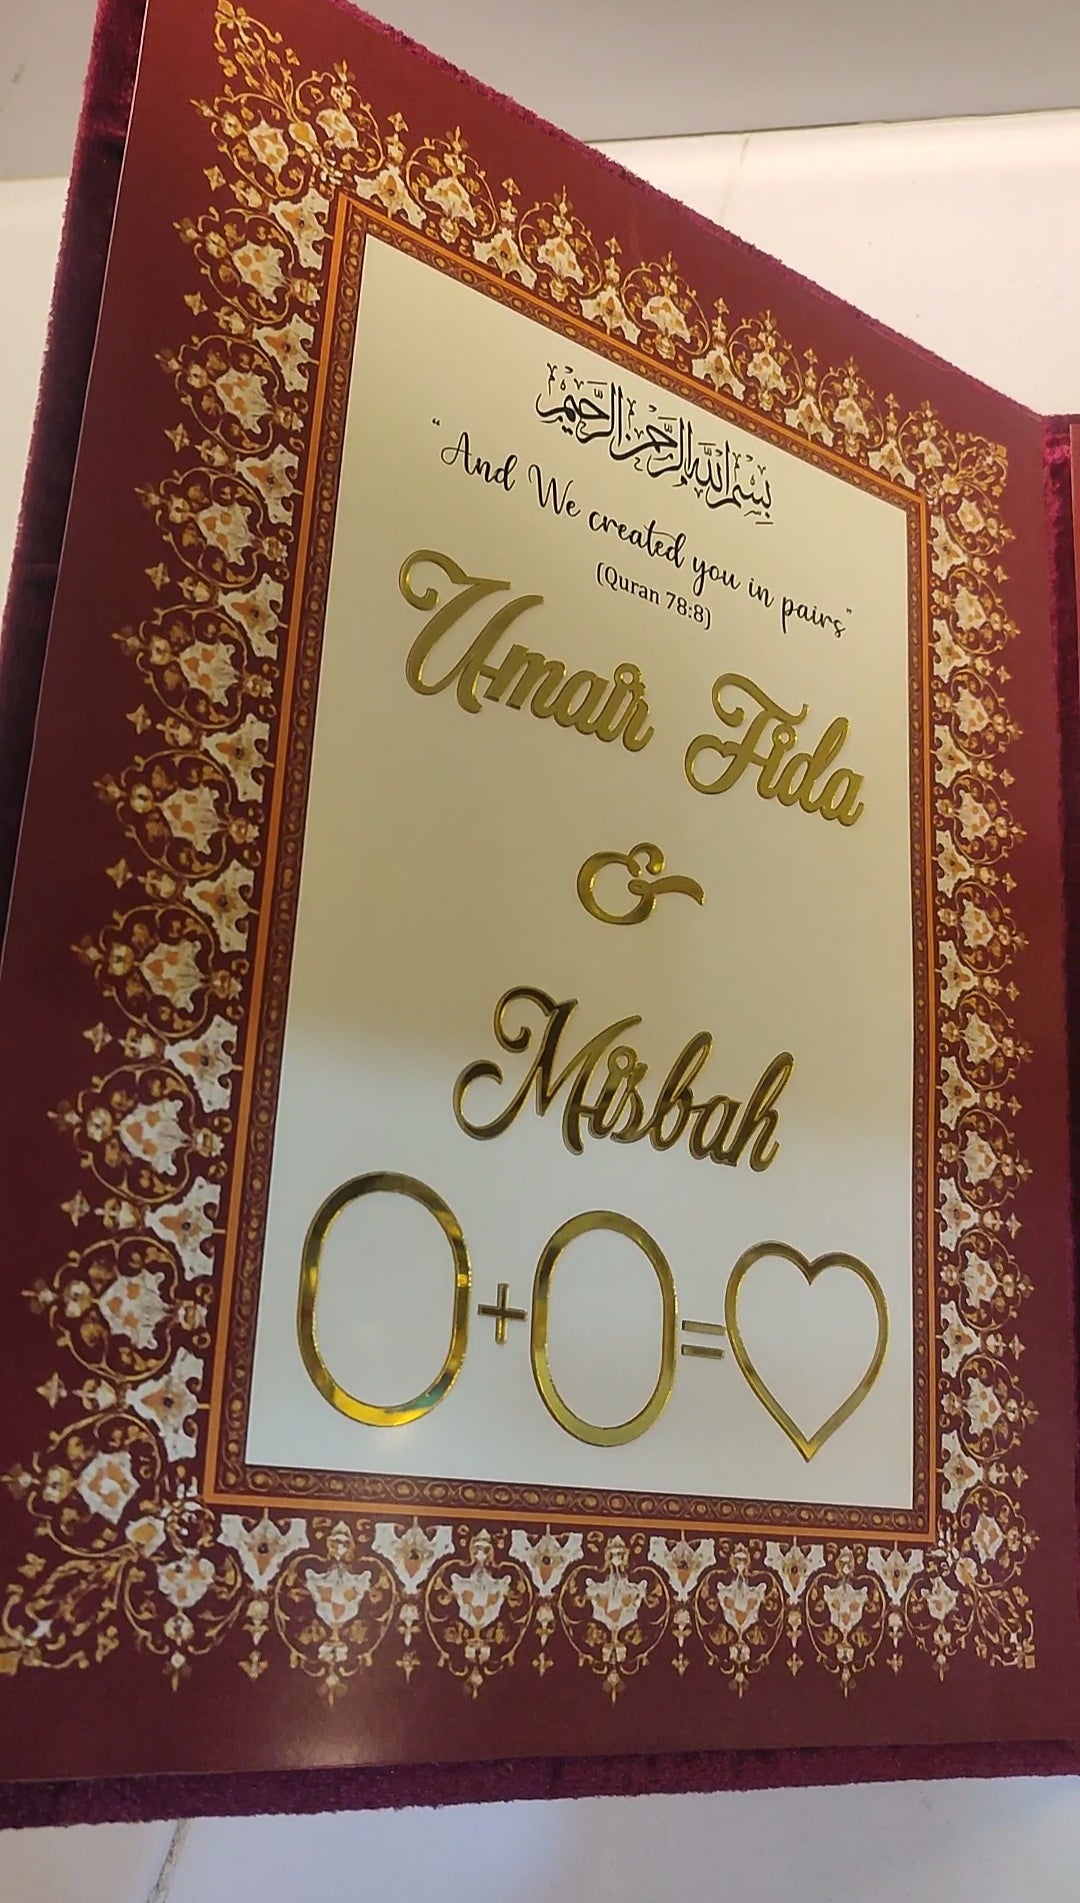 بِسْمِ اللَّهِ الرَّحْمَٰنِ الرَّحِيمِ
"And We created you in pairs"
(Quran 78:8)
Umair Fida
&
Misbah
O + O = ♡